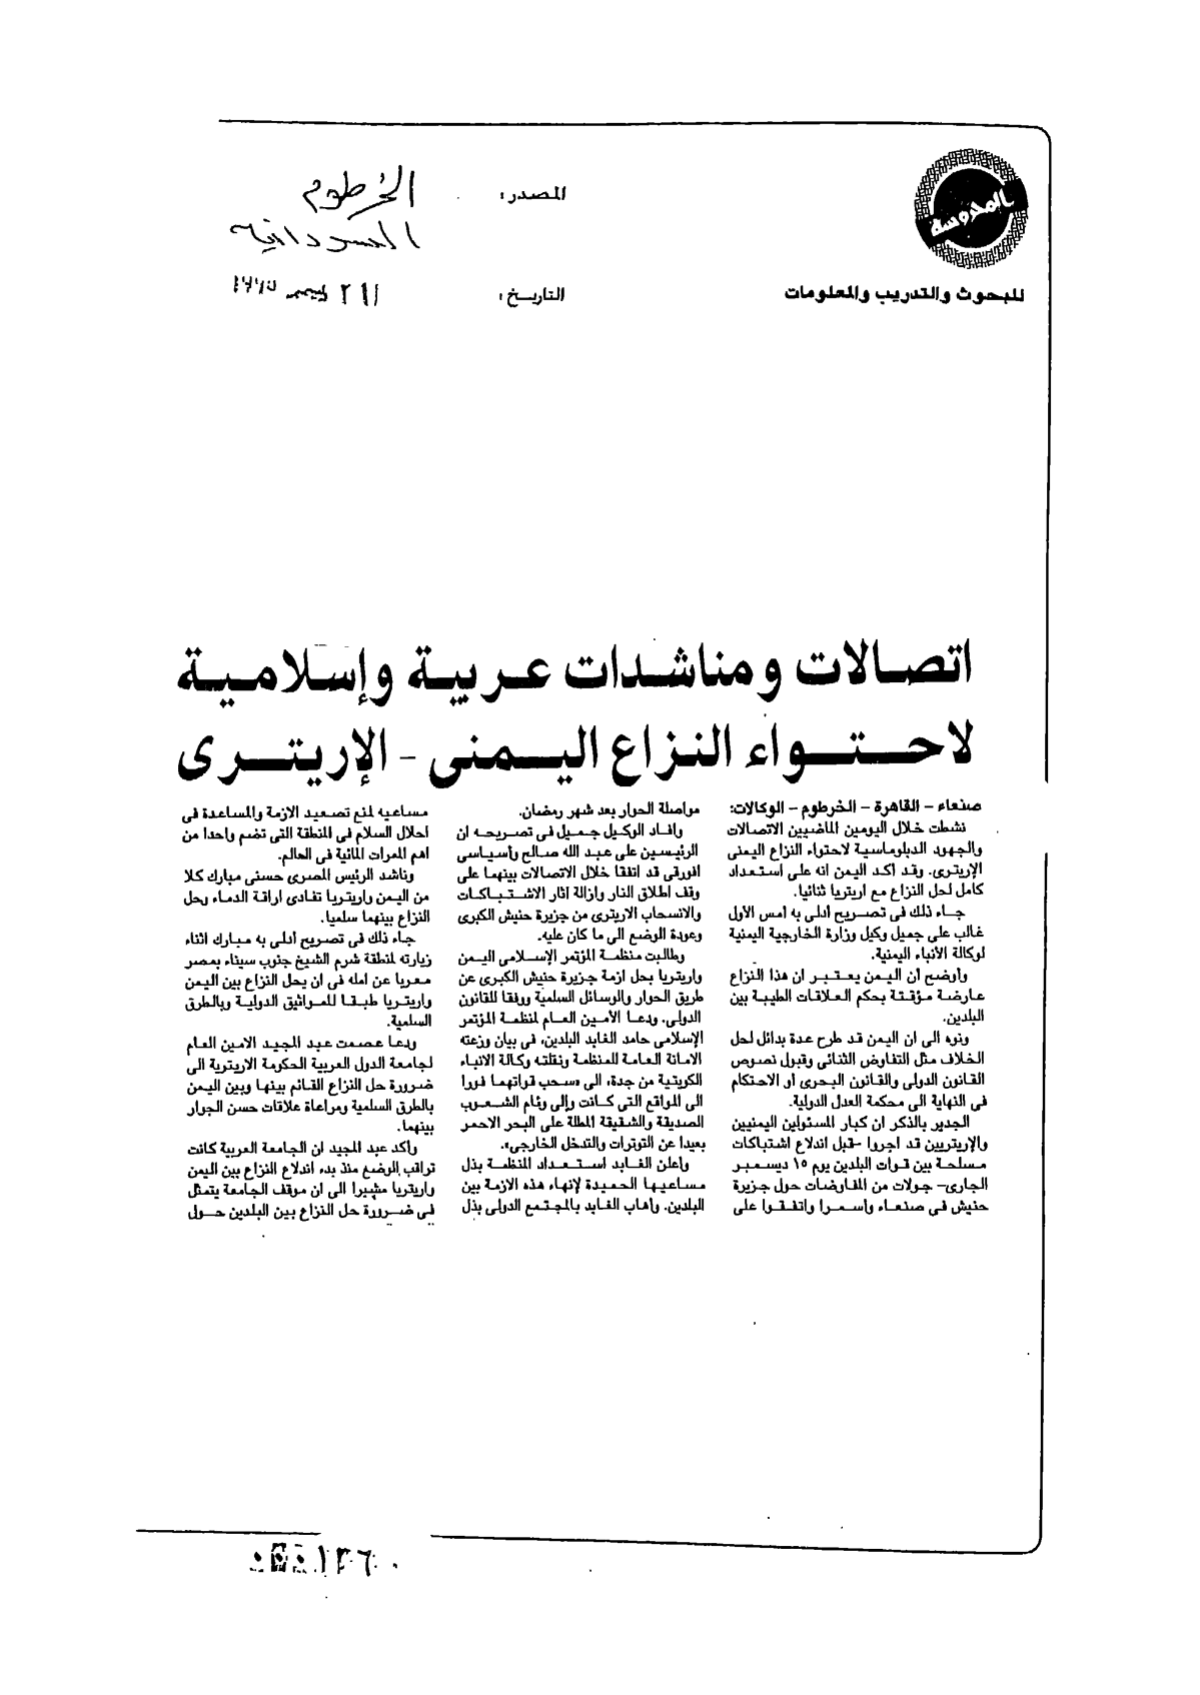 المحروسة
للبحوث والتدريب والمعلومات
المصدر: الخرطوم
السودانية
التاريخ: ٢٦ ديسمبر ١٩٩٥
اتصالات ومناشدات عربية وإسلامية
لاحتواء النزاع اليمنى - الإريترى
صنعاء - القاهرة - الخرطوم - الوكالات:
نشطت خلال اليومين الماضيين الاتصالات
والجهود الدبلوماسية لاحتواء النزاع اليمنى
الإريترى. وقد أكد اليمن انه على استعداد
كامل لحل النزاع مع اريتريا ثنائيا.
جاء ذلك فى تصريح أدلى به امس الأول
غالب على جميل وكيل وزارة الخارجية اليمنية
لوكالة الأنباء اليمنية.
وأوضح أن اليمن يعتبر ان هذا النزاع
عارضة مؤقتة بحكم العلاقات الطيبة بين
البلدين.
ونوه الى ان اليمن قد طرح عدة بدائل لحل
الخلاف مثل التفاوض الثنائى وقبول نصوص
القانون الدولى والقانون البحرى أو الاحتكام
فى النهاية الى محكمة العدل الدولية.
الجدير بالذكر ان كبار المسئولين اليمنيين
والإريتريين قد اجروا -قبل اندلاع اشتباكات
مسلحة بين قوات البلدين يوم ١٥ ديسمبر
الجارى- جولات من المفاوضات حول جزيرة
حنيش فى صنعاء وأسمرا واتفقوا على
مواصلة الحوار بعد شهر رمضان.
وافاد الوكيل جميل فى تصريحه ان
الرئيسين على عبد الله صالح وأسياسى
افورقى قد اتفقا خلال الاتصالات بينهما على
وقف اطلاق النار وازالة اثار الاشتباكات
والانسحاب الاريترى من جزيرة حنيش الكبرى
وعودة الوضع الى ما كان عليه.
وطالبت منظمة المؤتمر الإسلامى اليمن
واريتريا بحل ازمة جزيرة حنيش الكبرى عن
طريق الحوار والوسائل السلمية ووفقا للقانون
الدولى. ودعا الأمين العام لمنظمة المؤتمر
الإسلامى حامد الغابد البلدين، فى بيان وزعته
الامانة العامة للمنظمة ونقلته وكالة الانباء
الكويتية من جدة، الى «سحب قواتهما فورا
الى المواقع التى كانت وإلى وئام الشعوب
الصديقة والشقيقة المطلة على البحر الاحمر
بعيدا عن التوترات والتدخل الخارجى».
وأعلن الغابد استعداد المنظمة بذل
مساعيها الحميدة لإنهاء هذه الازمة بين
البلدين. وأهاب الغابد بالمجتمع الدولى بذل
مساعيه لمنع تصعيد الازمة والمساعدة فى
احلال السلام فى المنطقة التى تضم واحدا من
اهم الممرات المائية فى العالم.
وناشد الرئيس المصرى حسنى مبارك كلا
من اليمن واريتريا تفادى اراقة الدماء وحل
النزاع بينهما سلميا.
جاء ذلك فى تصريح أدلى به مبارك اثناء
زيارته لمنطقة شرم الشيخ جنوب سيناء بمصر
معربا عن امله فى ان يحل النزاع بين اليمن
واريتريا طبقا للمواثيق الدولية وبالطرق
السلمية.
ودعا عصمت عبد المجيد الامين العام
لجامعة الدول العربية الحكومة الاريترية الى
ضرورة حل النزاع القائم بينها وبين اليمن
بالطرق السلمية ومراعاة علاقات حسن الجوار
بينهما.
وأكد عبد المجيد ان الجامعة العربية كانت
تراقب الوضع منذ بدء اندلاع النزاع بين اليمن
واريتريا مشيرا الى ان موقف الجامعة يتمثل
فى ضرورة حل النزاع بين البلدين حول